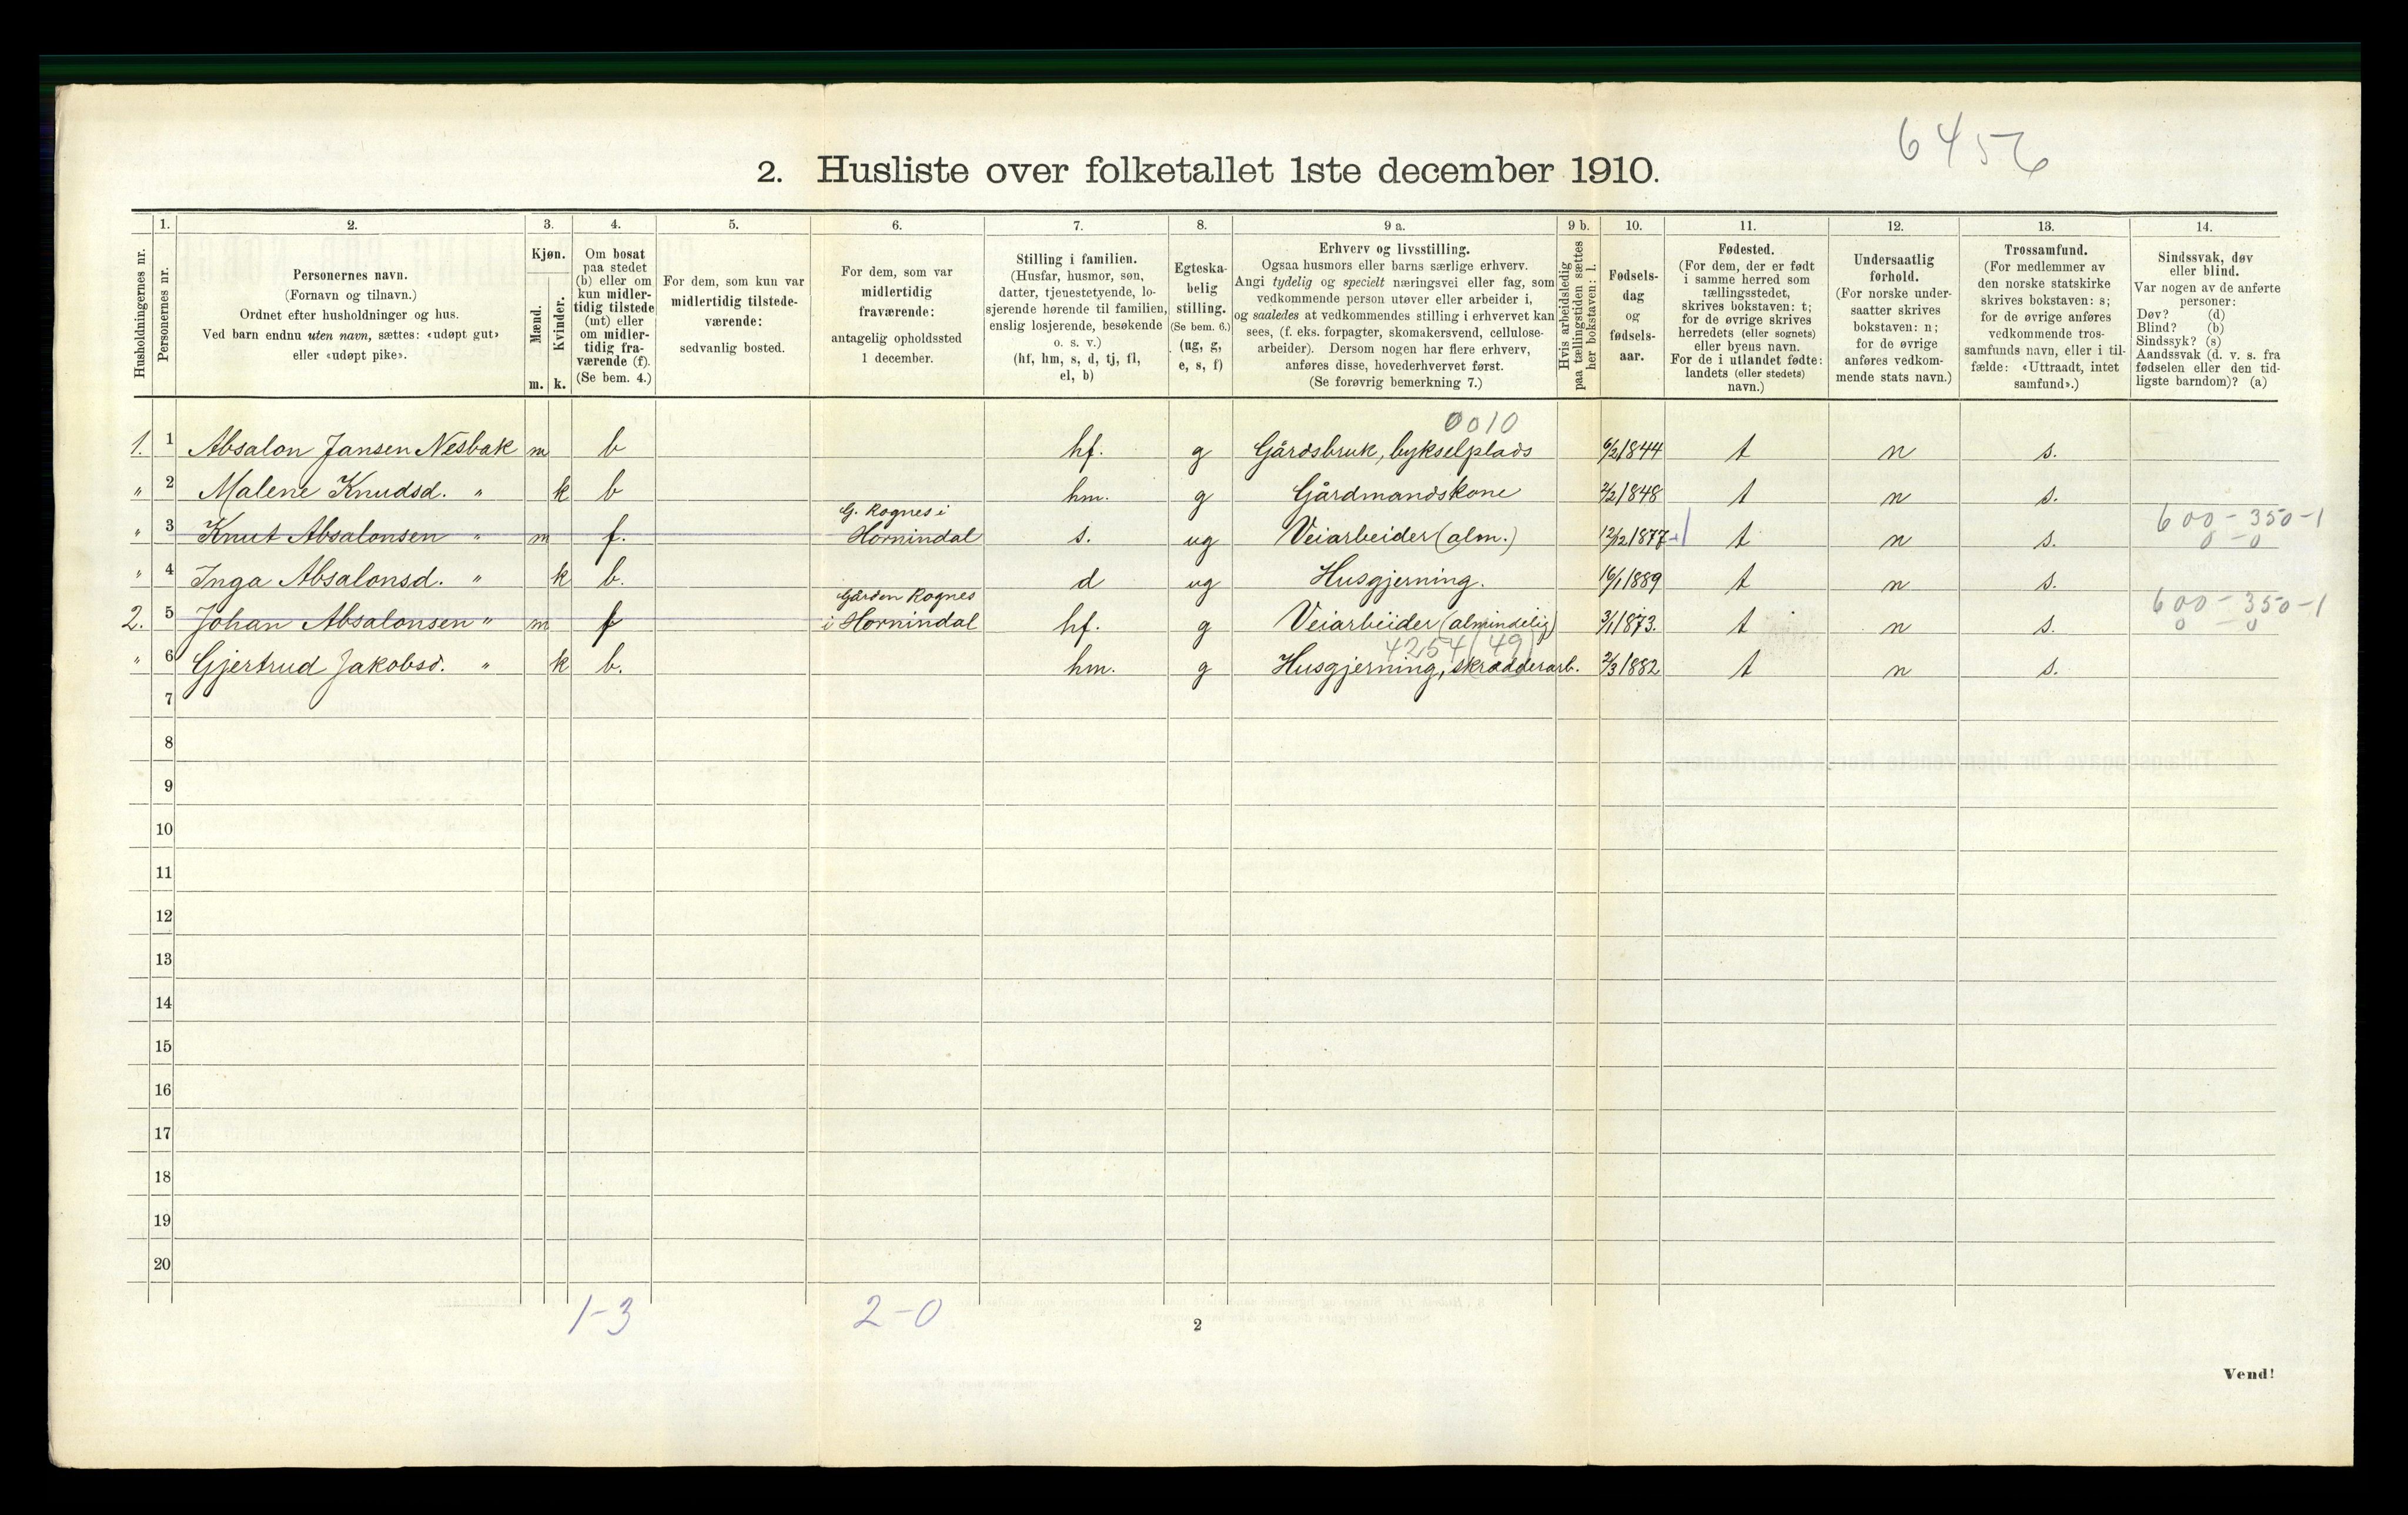 6456
2. Husliste over folketallet 1ste december 1910.
Husholdningernes nr.
1.
Personernes nr.
2.
Personernes navn.
(Fornavn og tilnavn.)
Ordnet efter husholdninger og hus.
Ved barn endnu uten navn, sættes: «udøpt gut»
eller «udøpt pike».
3.
Kjøn.
Mænd.
m.
Kvinder.
k.
4.
Om bosat
paa stedet
(b) eller om
kun midler-
tidig tilstede
(mt) eller
om midler-
tidig fra-
værende (f).
(Se bem. 4.)
5.
For dem, som kun var
midlertidig tilstede-
værende:
sedvanlig bosted.
6.
For dem, som var
midlertidig
fraværende:
antagelig opholdssted
1 december.
7.
Stilling i familien.
(Husfar, husmor, søn,
datter, tjenestetyende, lo-
sjerende hørende til familien,
enslig losjerende, besøkende
o. s. v.)
(hf, hm, s, d, tj, fl,
el, b)
8.
Egteska-
belig
stilling.
(Se bem. 6.)
(ug, g,
e, s, f)
9 a.
Erhverv og livsstilling.
Ogsaa husmors eller barns særlige erhverv.
Angi tydelig og specielt næringsvei eller fag, som
vedkommende person utøver eller arbeider i,
og saaledes at vedkommendes stilling i erhvervet kan
sees, (f. eks. forpagter, skomakersvend, cellulose-
arbeider). Dersom nogen har flere erhverv,
anføres disse, hovederhvervet først.
(Se forøvrig bemerkning 7.)
9 b.
Hvis arbeidsledig
paa tællingstiden sættes
her bokstaven: l.
10.
Fødsels-
dag
og
fødsels-
aar.
11.
Fødested.
(For dem, der er født
i samme herred som
tællingsstedet,
skrives bokstaven: t;
for de øvrige skrives
herredets (eller sognets)
eller byens navn.
For de i utlandet fødte:
landets (eller stedets)
navn.)
12.
Undersaatlig
forhold.
(For norske under-
saatter skrives
bokstaven: n;
for de øvrige
anføres vedkom-
mende stats navn.)
13.
Trossamfund.
(For medlemmer av
den norske statskirke
skrives bokstaven: s;
for de øvrige anføres
vedkommende tros-
samfunds navn, eller i til-
fælde: «Uttraadt, intet
samfund».)
14.
Sindssvak, døv
eller blind.
Var nogen av de anførte
personer:
Døv? (d)
Blind? (b)
Sindssyk? (s)
Aandssvak (d. v. s. fra
fødselen eller den tid-
ligste barndom)? (a)
0010
1. 1 Absalon Jansen Nesbak m b hf. g Gårdsbruk, bykselplads 6/2 1844 t n s.
" 2 Malene Knudsd. " k b hm. g Gårdmandskone 2/2 1848 t n s.
G. Rognes i 600-350-1
" 3 Knut Absalonsen " m f. Hornindal s. ug Veiarbeider (alm.) 12/12 1877 t n s. 0-0
" 4 Inga Absalonsd. " k b. d ug Husgjerning. 16/1 1889 t n s.
Gården Rognes 600-350-1
2. 5 Johan Absalonsen " m f i Hornindal hf. g Veiarbeider (almindelig) 3/1 1873. t n s. 0-0
4254 (49)
" 6 Gjertrud Jakobsd. " k b. hm. g Husgjerning, skrædderarb. 2/3 1882 t n s.
7
8
9
10
11
12
13
14
15
16
17
18
19
20
1-3 2-0
2
Vend!